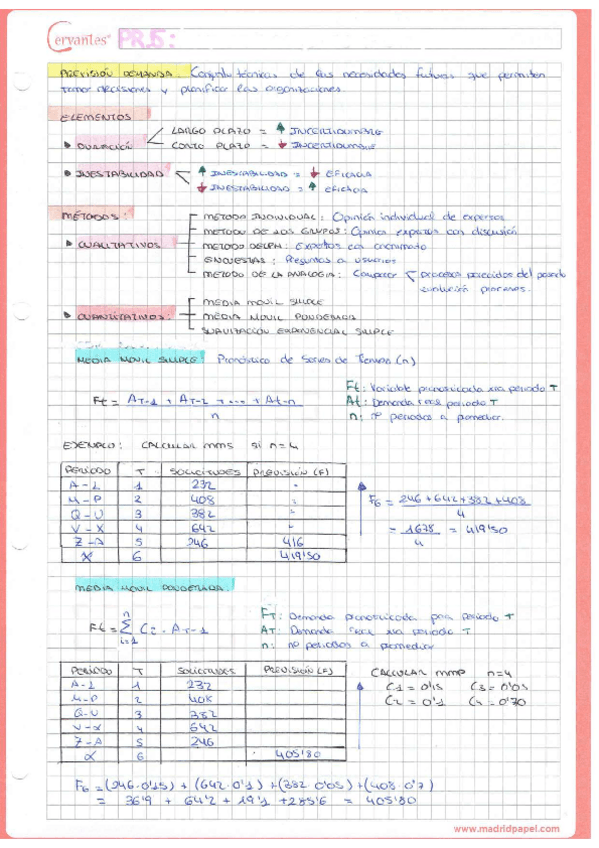 Cervantes® PR.5:
PREVISIÓN DEMANDA: Conjunto técnicas de las necesidades futuras que permiten
tomar decisiones y planificar las organizaciones.
ELEMENTOS
DURACIÓN
LARGO PLAZO = ↑ INCERTIDUMBRE
CORTO PLAZO = ↓ INCERTIDUMBRE
INESTABILIDAD
↑ INESTABILIDAD = ↓ EFICACIA
↓ INESTABILIDAD = ↑ EFICACIA
MÉTODOS:
CUALITATIVOS
MÉTODO INDIVIDUAL: Opinión individual de expertos
MÉTODO DE LOS GRUPOS: Opinión expertos con discusión
MÉTODO DELPHI: Expertos con anonimato
ENCUESTAS: Preguntas a usuarios
MÉTODO DE LA ANALOGÍA: Comparar procesos parecidos del pasado
evolución
CUANTITATIVOS:
MEDIA MOVIL SIMPLE
MEDIA MOVIL PONDERADA
SUAVIZACIÓN EXPONENCIAL SIMPLE
MEDIA MOVIL SIMPLE: Pronóstico de Series de Tiempo (n)
Ft = AT-1 + AT-2 + ---- + At-n
n
Ft: Variable pronosticada para periodo T
At: Demanda real periodo T
n: nº periodos a promediar.
EJEMPLO: CALCULAR MMS si n=4
PERIODO T SOLICITUDES PREVISIÓN (F)
A-L 1 232 -
M-P 2 408 -
Q-U 3 382 -
V-X 4 642
Z-A 5 246 416
X 6 419'50
F6 = 246+642+382+408
4
= 1678 = 419'50
4
MEDIA MOVIL PONDERADA:
n
Ft = Σ Ci · AT-1
i=1
FT: Demanda pronosticada para periodo T
AT: Demanda real para periodo T
n: nº periodos a promediar
PERIODO T SOLICITUDES PREVISIÓN (F)
A-L 1 232
M-P 2 408
Q-U 3 382
V-X 4 642
Z-A 5 246
α 6 405'80
CALCULAR MMP n=4
C1 = 0'15 C3 = 0'05
C2 = 0'1 C4 = 0'70
F6 = (246·0'15) + (642·0'1) + (382·0'05) + (408·0'7)
= 36'9 + 64'2 + 19'1 + 285'6 = 405'80
www.madridpapel.com